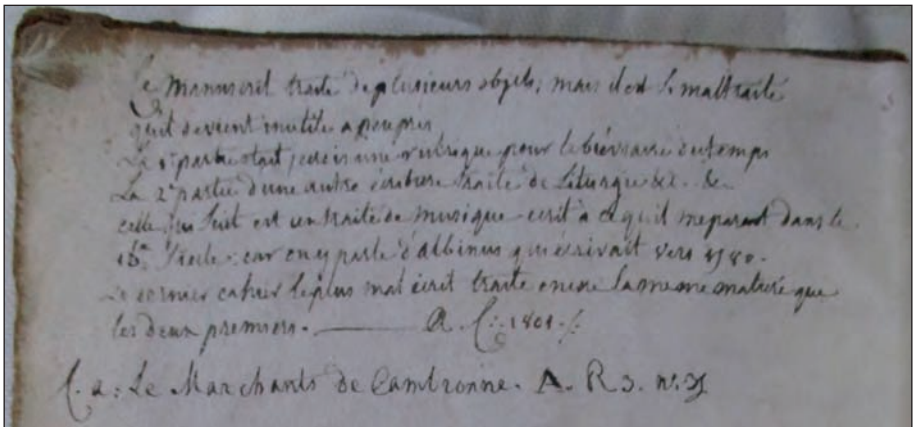 Ce Manuscrit traite de plusieurs objets; mais il est si maltraité
qu'il devient inutile a peu pres
La 1e partie etait, une rubrique pour le bréviaire du temps
La 2e partie d'une autre écriture traite de Liturgie &c. &c
celle qui suit est un traité de musique ecrit à ce qu'il me parait dans le
Siecle: car on y parle d'albinus qui écrivait vers
Le dernier cahier le plus mal écrit traite encore la meme matiere que
les deux premiers. A. C. 1801.
C. a: Le Marchants de Cambronne. A. R 3. n°.